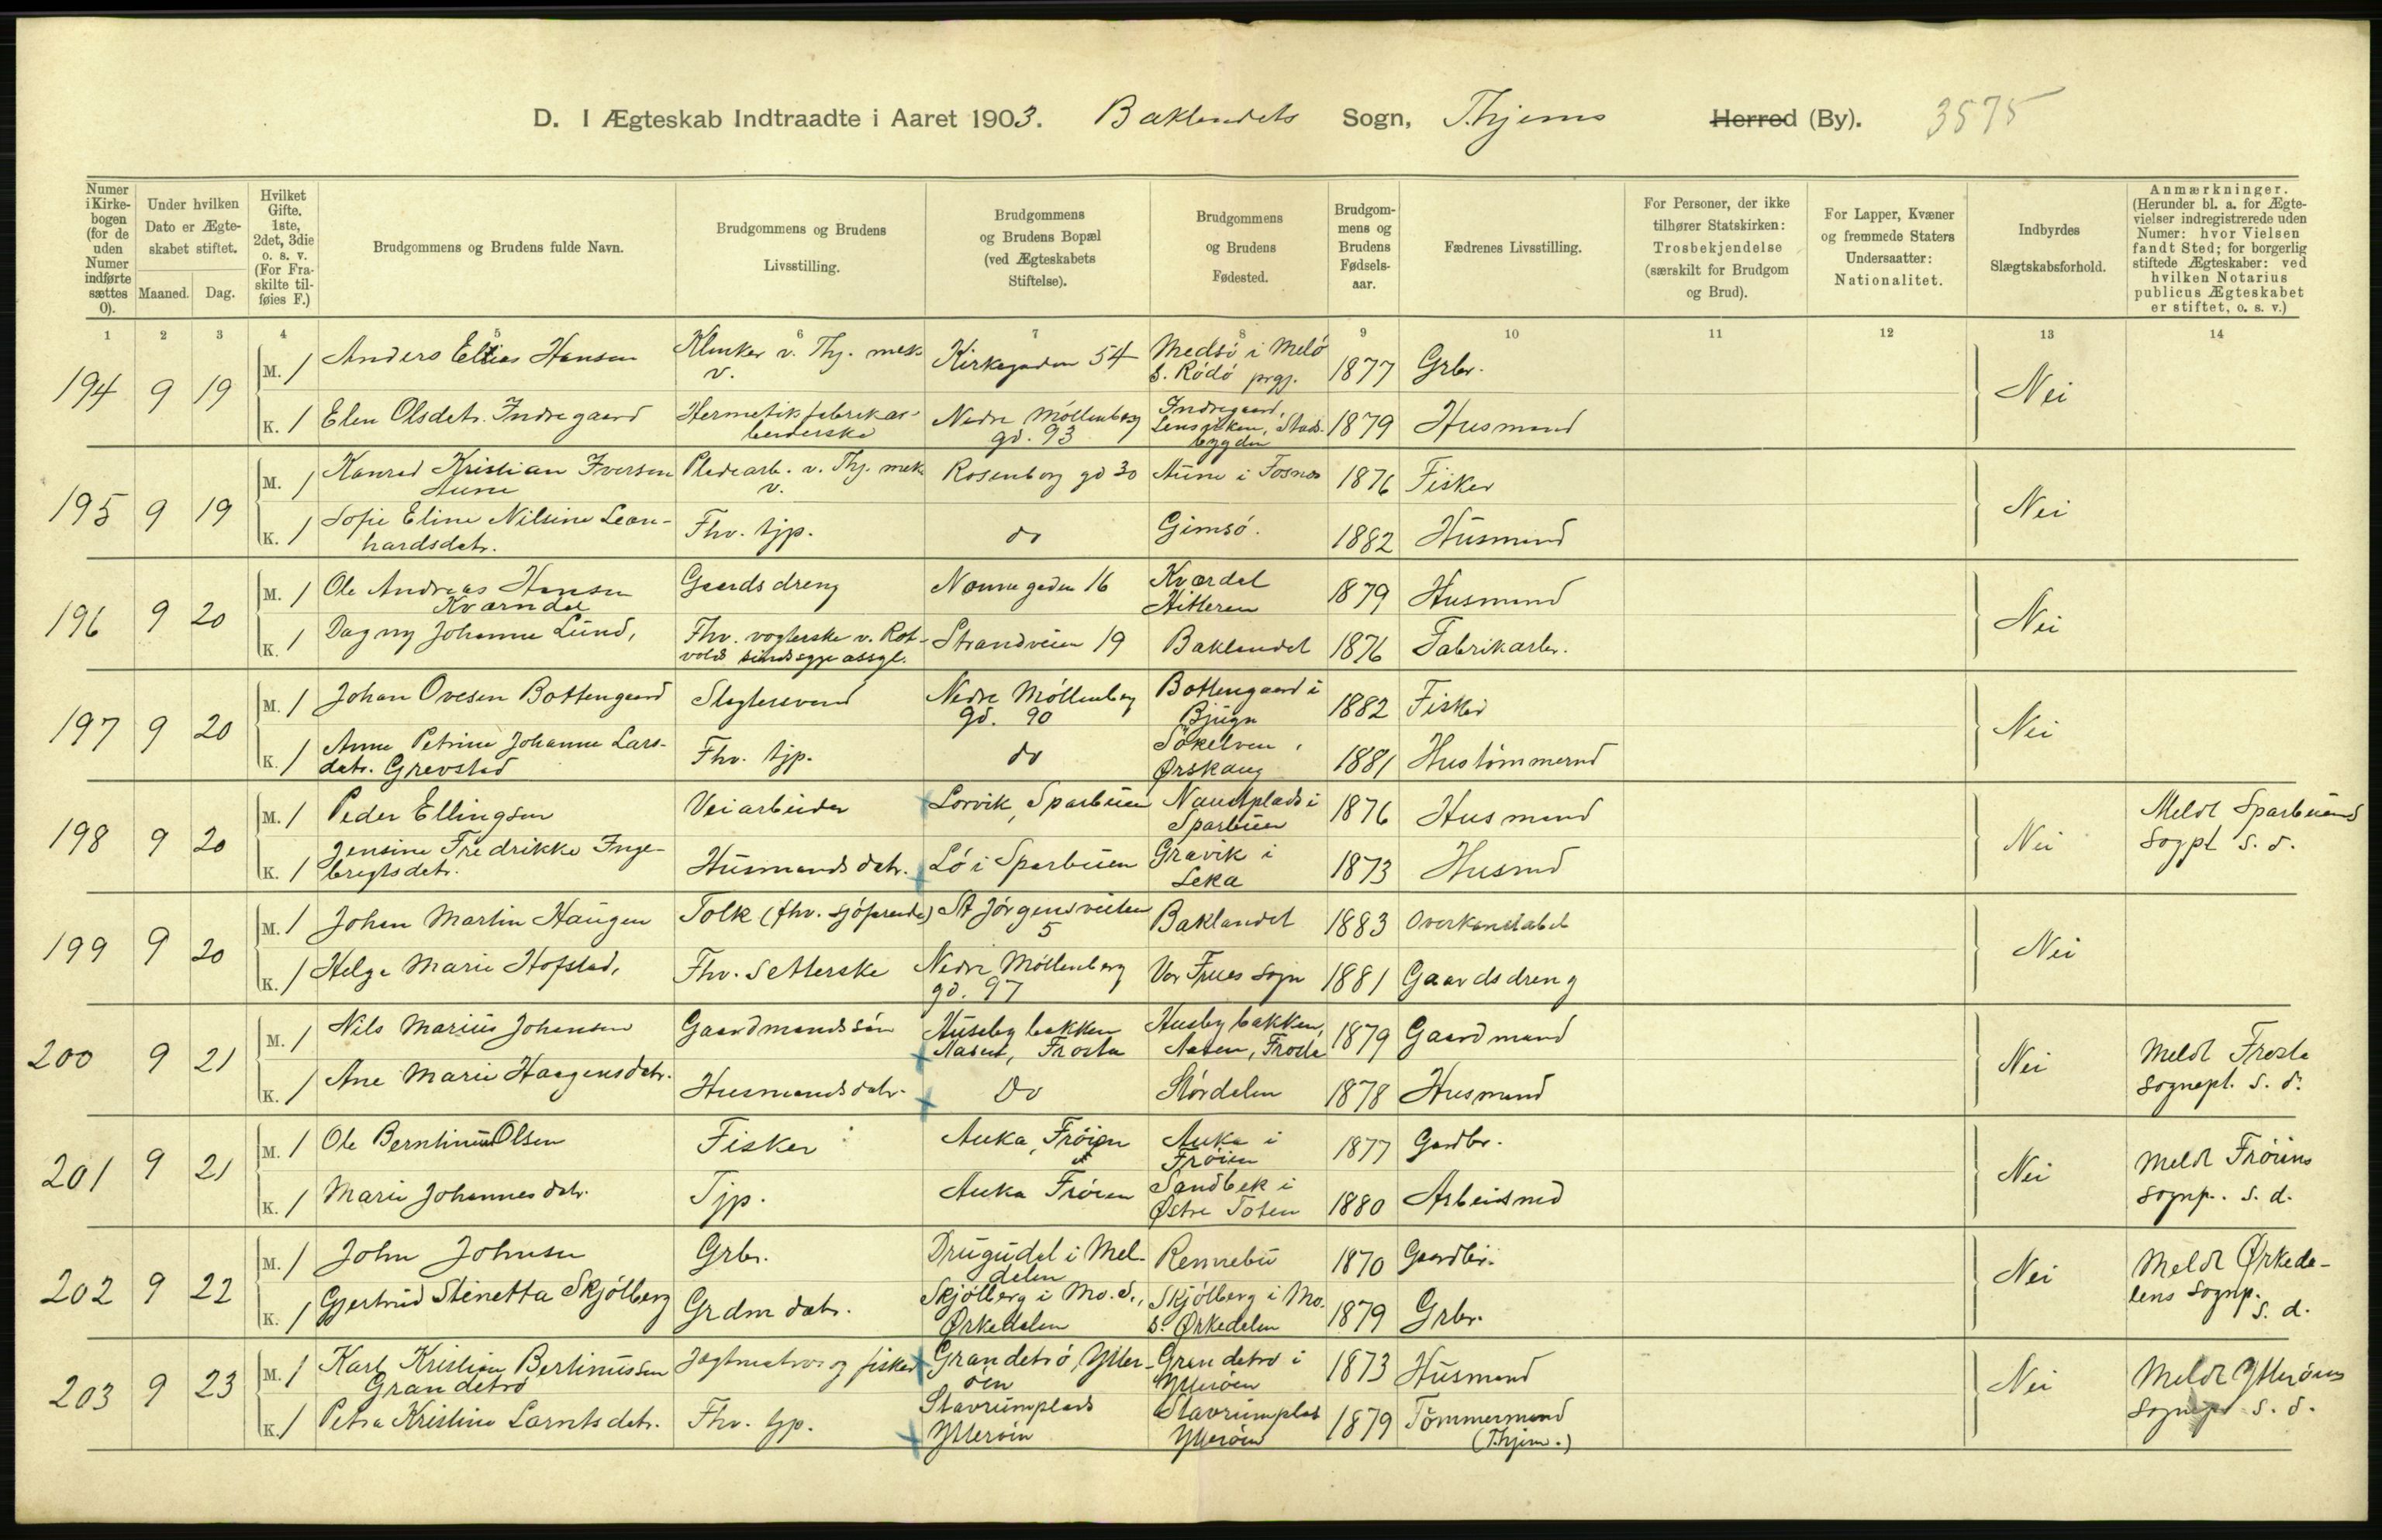 D. I Ægteskab Indtraadte i Aaret 1903. Baklandets Sogn, Thjems Herred (By). 3575
Numer i Kirkebogen (for de uden Numer indførte sættes 0).
Under hvilken Dato er Ægteskabet stiftet.
Maaned. Dag.
Hvilket Gifte. 1ste, 2det, 3die o. s. v. (For Fraskilte tilføies F.)
Brudgommens og Brudens fulde Navn.
Brudgommens og Brudens Livsstilling.
Brudgommens og Brudens Bopæl (ved Ægteskabets Stiftelse).
Brudgommens og Brudens Fødested.
Brudgommens og Brudens Fødselsaar.
Fædrenes Livsstilling.
For Personer, der ikke tilhører Statskirken: Trosbekjendelse (særskilt for Brudgom og Brud).
For Lapper, Kvæner og fremmede Staters Undersaatter: Nationalitet.
Indbyrdes Slægtskabsforhold.
Anmærkninger. (Herunder bl. a. for Ægtevielser indregistrerede uden Numer: hvor Vielsen fandt Sted; for borgerlig stiftede Ægteskaber: ved hvilken Notarius publicus Ægteskabet er stiftet, o. s. v.)
1 2 3 4 5 6 7 8 9 10 11 12 13 14
194 9 19 M. 1 Anders Elias Hansen Klinker v. Thj. mek v. Kirkegaden 54 Medsö i Melö s. Rödö prgj. 1877 Grbr. Nei
K. 1 Elen Olsdetr. Indregaard Hermetikfabrikarbeiderske Nedre Möllenberg gd. 93 Indregaard, Lensviken, Stadsbygden 1879 Husmand
195 9 19 M. 1 Konrad Kristian Iversen Aune Pladearb. v. Thj. mek v. Rosenborg gd 30 Aune i Fosnes 1876 Fisker Nei
K. 1 Sofie Eline Nilsine Leonhardsdatr. Fhv. tjp. do Gimsö. 1882 Husmand
196 9 20 M. 1 Ole Andreas Hansen Kværndal Gaardsdreng Nonnegaden 16 Kværdal Hitteren 1879 Husmand Nei
K. 1 Dagny Johanne Lund, Fhv. vogterske v. Rotvolds sindssygeassyl. Strandveien 19 Baklandet 1876 Fabrikarbr.
197 9 20 M. 1 Johan Ovesen Bottengaard Slagtersvend Nedre Möllenberg gd. 90 Bottengaard i Bjugn 1882 Fisker Nei
K. 1 Anne Petrine Johanne Larsdatr. Grevstad Fhv. tjp. do Sökelven, Ørskaug 1881 Hustömmermd
198 9 20 M. 1 Peder Ellingsen Veiarbeider Lorvik, Sparbuen Naustplads i Sparbuen 1876 Husmand Nei Meldt Sparbuens Sogpt s. d.
K. 1 Jensine Fredrikke Ingebregtsdatr. Husmandsdatr. Lö i Sparbuen Gravik i Leka 1873 Husmd
199 9 20 M. 1 Johan Martin Haugen Tolk (fhv. sjöfarende) St Jörgensveiten 5 Baklandet 1883 Overkonstabel Nei
K. 1 Helga Marie Hofstad, Fhv. Setterske Nedre Möllenberg gd. 97 Vor Frues Sogn 1881 Gaardsdreng
200 9 21 M. 1 Nils Marius Johansen Gaardmandssön Husebybakken Aasen, Frosta Husbybakken, Aasen, Frosta 1879 Gaardmand Nei Meldt Frosta Sognepl. s. d.
K. 1 Ane Marie Haagensdatr. Husmandsdatr. Do Stördalen 1878 Husmand
201 9 21 M. 1 Ole Berntinus Olsen Fisker Auka, Fröien Auka i Fröien 1877 Gardbr. Nei Meldt Fröiens Sognp. s. d.
K. 1 Marie Johannesdatr. Tjp. Auka Fröien Sandbek i Østre Toten 1880 Arbeidsmd
202 9 22 M. 1 John Johnsen Grbr. Drugudal i Meldalen Rennebu 1870 Gaardbr. Nei Meldt Ørkedalens Sognp. s. d.
K. 1 Gjertrud Stenetta Skjölberg Grdmdatr. Skjölberg i Mo. S., Ørkedalen Skjölberg i Mo. s. Ørkedalen 1879 Grbr.
203 9 23 M. 1 Karl Kristian Bertinussen Grandetrö Jagtmatros og fisker Grandetrö, Ytterøen Grandetrö i Ytterøen 1873 Husmand Nei Meldt Ytterøens Sognept s. d.
K. 1 Petra Kristine Larntsdatr. Fhv. tjp. Stavrumplads Ytterøen Stavrumplas Ytterøen 1879 Tömmermand (Thjem.)